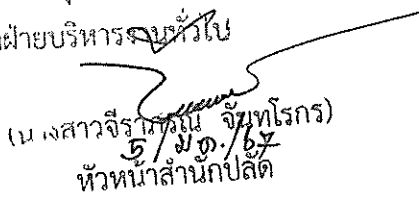 ฝ่ายบริหารงานทั่วไป
(นางสาวจีราภรณ์ จันทโรกร)
5 / มี.ค. / 67
หัวหน้าสำนักปลัด